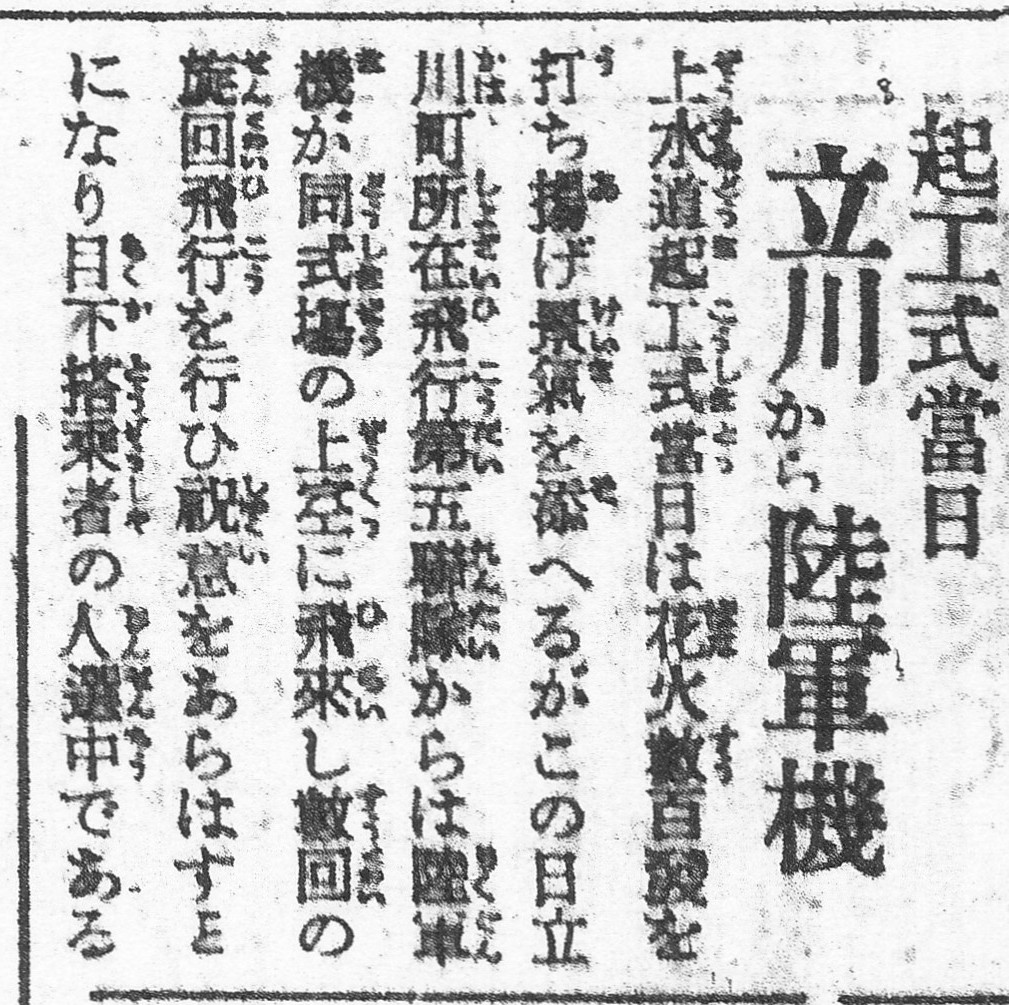 起工式當日
立川から陸軍機
上水道起工式當日は花火數百發を
打ち揚げ景氣を添へるがこの日立
川町所在飛行第五聯隊からは陸軍
機が同式場の上空に飛來し數回の
旋回飛行を行ひ祝意をあらはすこと
になり目下搭乘者の人選中である